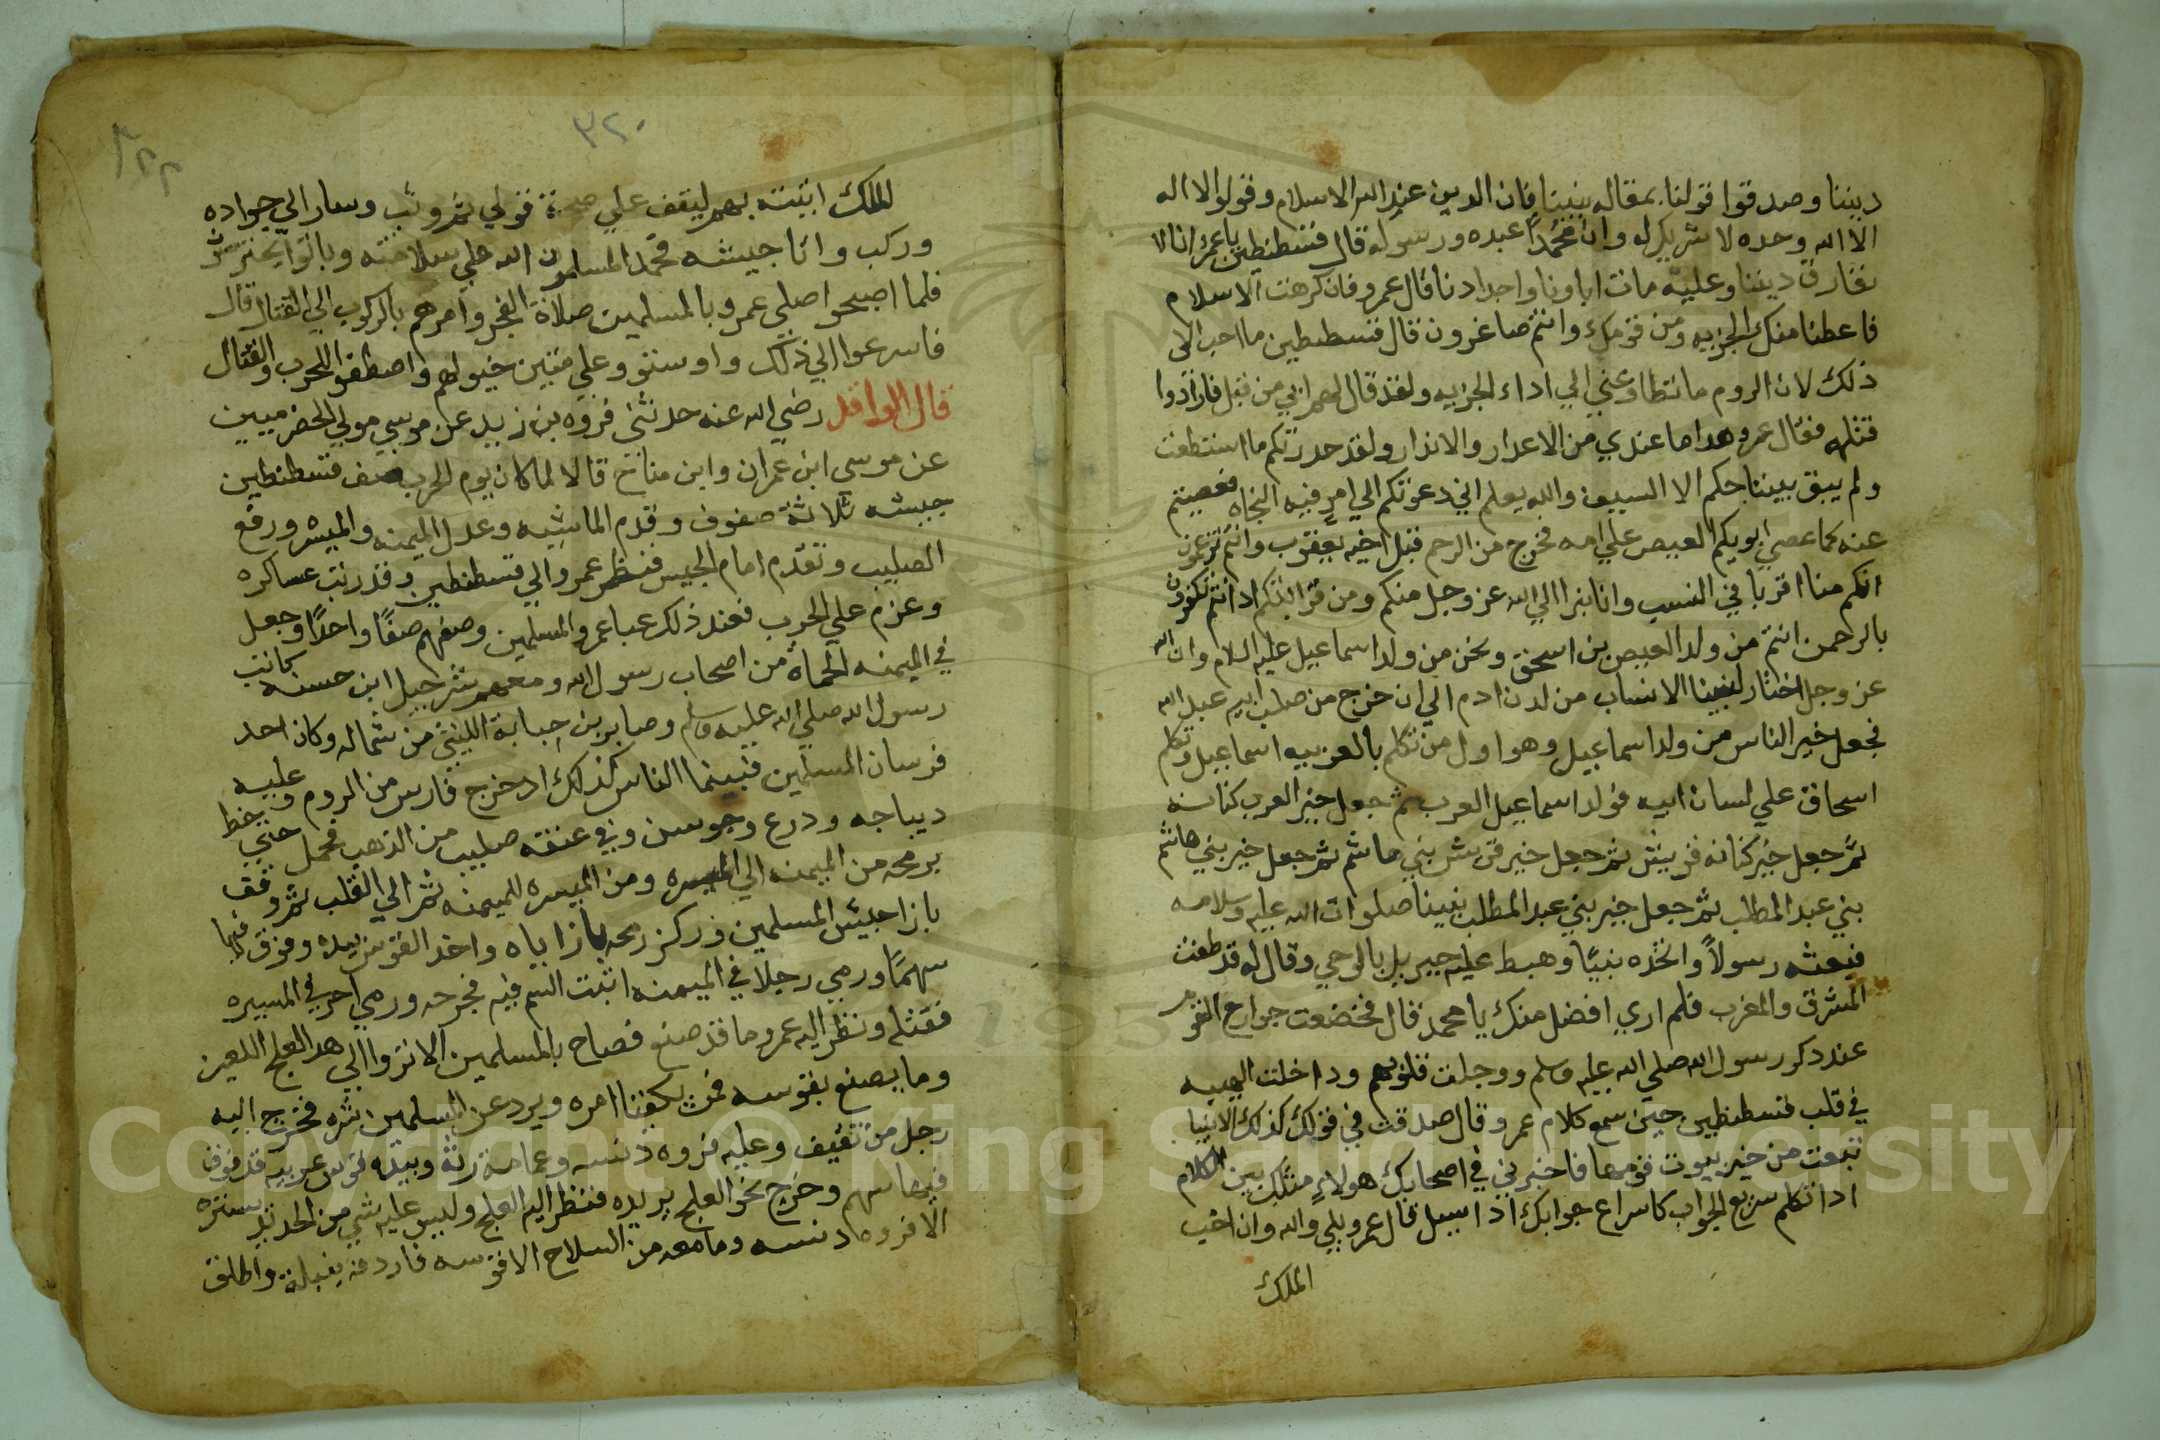 ديننا وصدقوا قولنا بمقاله نبينا فان الدين عند الله الاسلام وقولوا لا اله
الا الله وحده لا شريك له وان محمدًا عبده ورسوله قال قسطنطين يا عمرو انا لا
نفارق ديننا وعليه مات اباونا واجدادنا قال عمرو فان كرهت الاسلام
فاعطنا منك الجزيه ومن قومك وانتم صاغرون قال قسطنطين ما احب الى
ذلك لان الروم ما تطاوعني الي اداء الجزيه ولقد قال لهم ابي من قبل فارادوا
قتله فقال عمرو هدا ما عندي من الاعدار والاندار ولقد حدرتكم ما استطعت
ولم يبق بيننا حكم الا السيف والله يعلم اني دعوتكم الي امر فيه النجاه فعصيتم
عنه كما عصي ابويكم العيص علي امه فخرج من الرحم قبل اخيه يعقوب وانتم تزعمون
انكم منا اقربا في النسب وانا نبرا الي الله عز وجل منكم ومن قرابتكم اد انتم تكفرون
بالرحمن انتم من ولد العيص بن اسحق ونحن من ولد اسماعيل عليه السلام وان الله
عز وجل اختار لنبينا الانساب من لدن ادم الي ان خرج من صلب ابيه عبد الله
فجعل خير الناس من ولد اسماعيل وهو اول من تكلم بالعربيه اسماعيل وتكلم
اسحاق علي لسان ابيه فولد اسماعيل العرب ثم جعل خير العرب كنانه
ثم جعل خير كنانه قريش ثم جعل خير قريش بني هاشم ثم جعل خير بني هاشم
بني عبد المطلب ثم جعل خير بني عبد المطلب نبينا صلوات الله عليه وسلامه
فبعثه رسولاً واتخده نبيًا وهبط عليه جبريل بالوحي وقال له قد طفت
المشرق والمغرب فلم اري افضل منك يا محمد قال فخضعت جوارح القوم
عند دكر رسول الله صلي الله عليه وسلم ووجلت قلوبهم وداخلت الهيبه
في قلب قسطنطين حين سمع كلام عمرو وقال صدقت في قولك كذلك الانبيا
تبعت من خير بيوت قومها فاخبرني في اصحابك هولاءِ مثلك بين الكلام
ادا تكلم سريع الجواب كاسراع جوابك ادا سيل قال عمرو بلي والله وان احب
الملك
٣٢٠
الملك اتيته بهم ليقف علي صحة قولي ثم وثب وسار الي جواده
وركب واتا جيشه فحمد المسلمون الله علي سلامته وباتوا يحترسون
فلما اصبحوا صلي عمرو بالمسلمين صلاة الفجر وامرهم بالركوب الي القتال قال
فاسرعوا الي ذلك واوستو وعلي متين خيولهم واصطفوا للحرب والقتال
قال الواقد رضي الله عنه حدثني فروه بن زيد عن موسي مولي الحضرميين
عن موسي ابن عمران وابن مناح قالا لما كان يوم الحرب صف قسطنطين
جيشه ثلاثة صفوف وقدم الماشيه وعدل الميمنه والميسره ورفع
الصليب وتقدم امام الجيس فنظر عمرو الي قسطنطين وقد رتب عساكره
وعزم علي الحرب فعند ذلك عبا عمرو المسلمين وصفهم صفًا واحدًا وجعل
في الميمنه الحماة من اصحاب رسول الله ومعهم شرحبيل ابن حسنه كاتب
رسول الله صلي الله عليه وسلم وصابر بن جبابة الليثي من شماله وكان احد
فرسان المسلمين فبينما الناس كذلك اد خرج فارس من الروم وعليه
ديباجه ودرع وجوسن وفي عنقه صليب من الذهب فحمل حتي يخط
برمحه من الميمنه الي الميسره ومن الميسره للميمنه ثم الي القلب ثم وقف
بازا جيش المسلمين وركز رمحه بازا اياه واخد القوس بيده وفوق فيها
سهمًا ورمي رجلا في الميمنه اثبت السهم فيه فجرحه ورمي اخر في الميسره
فقتله ونظر اليه عمرو ما قد صنع فصاح بالمسلمين الا تروا الي هدا العلج اللعين
وما يصنع بقوسه فمن يكفينا امره ويرد عن المسلمين شره فخرج اليه
رجل من ثقيف وعليه فروه دنسه وعمامة رثة وبيده قوس عربيه قد فوق
فيها سهم وخرج نحو العلج يريده فنظر اليه العلج وليس عليه شي من الحديد يستره
الا فروه دنسه وما معه من السلاح الا قوسه فاردفه بنبلة واطلق